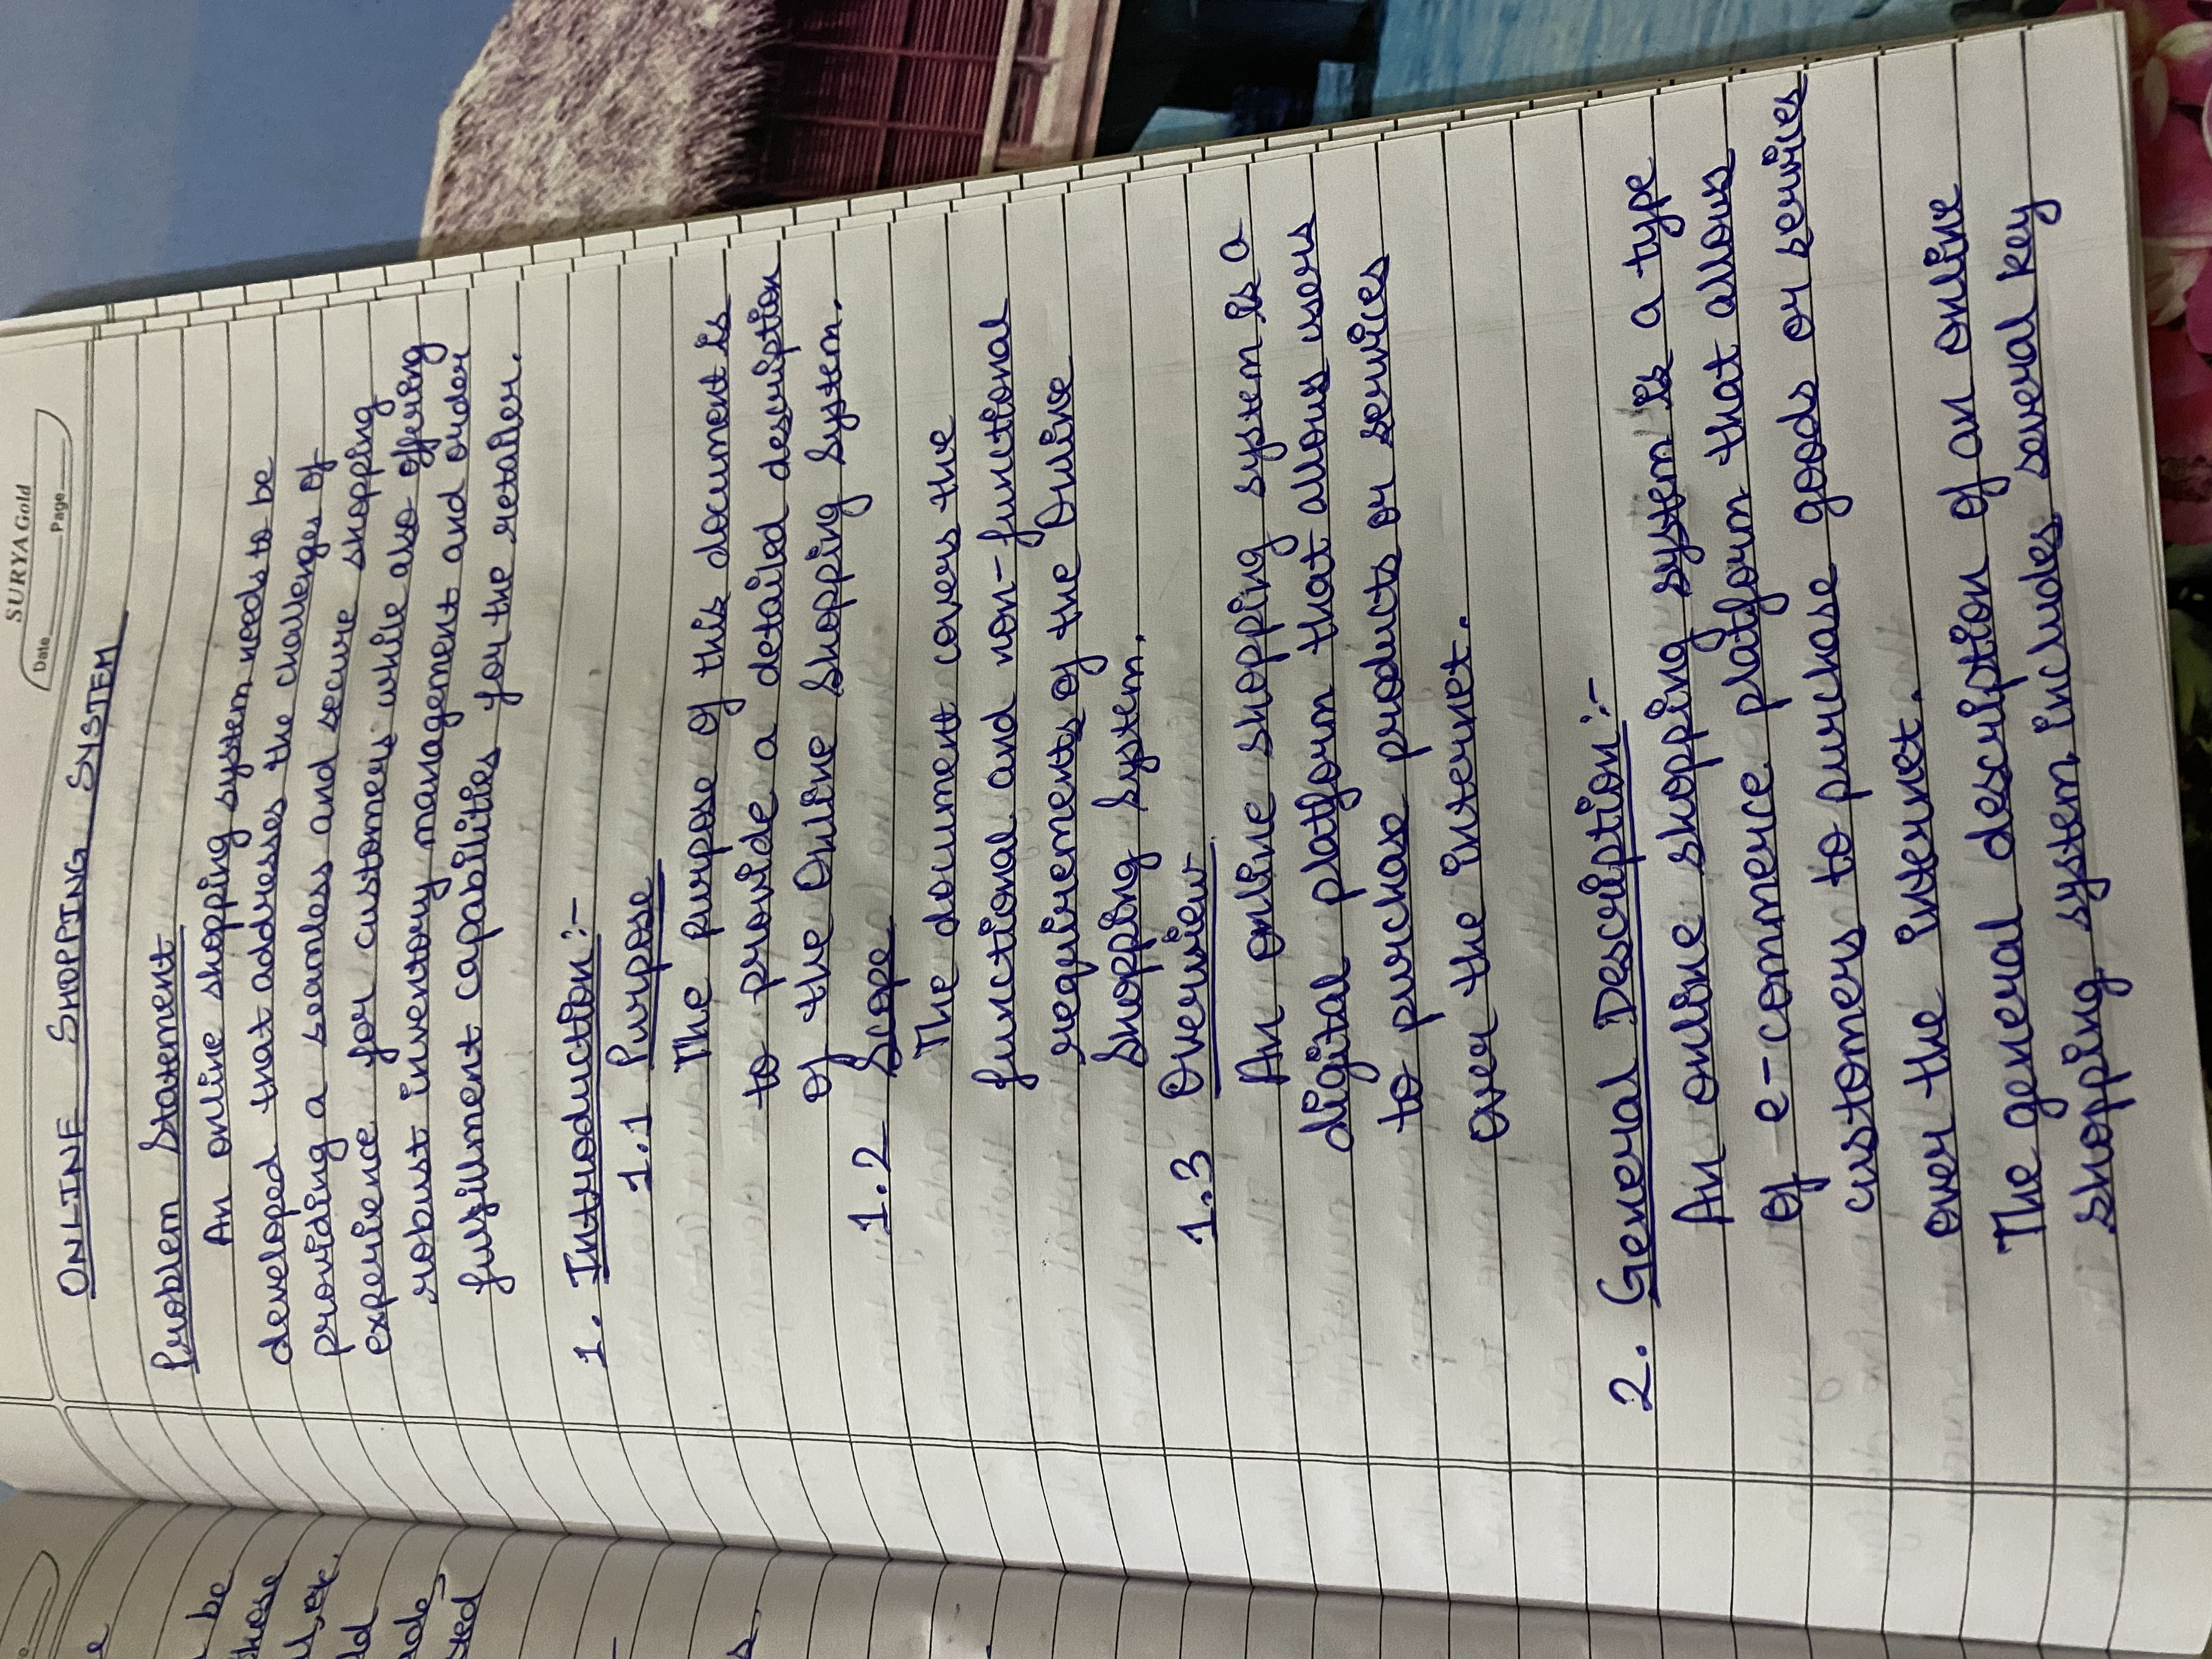 SURYA Gold
Date
Page
ONLINE SHOPPING SYSTEM
Problem Statement
An online shopping system needs to be
developed that addresses the challenges of
providing a seamless and secure shopping
experience for customers while also offering
robust inventory management and order
fulfillment capabilities for the retailer.
1. Introduction :-
1.1 Purpose
The purpose of this document is
to provide a detailed description
of the Online Shopping System.
1.2 Scope
The document covers the
functional and non-functional
requirements of the Online
Shopping System.
1.3 Overview
An online shopping system is a
digital platform that allows users
to purchase products or services
over the internet.
2. General Description :-
An online shopping system is a type
of e-commerce platform that allows
customers to purchase goods or services
over the internet.
The general description of an online
shopping system includes several key